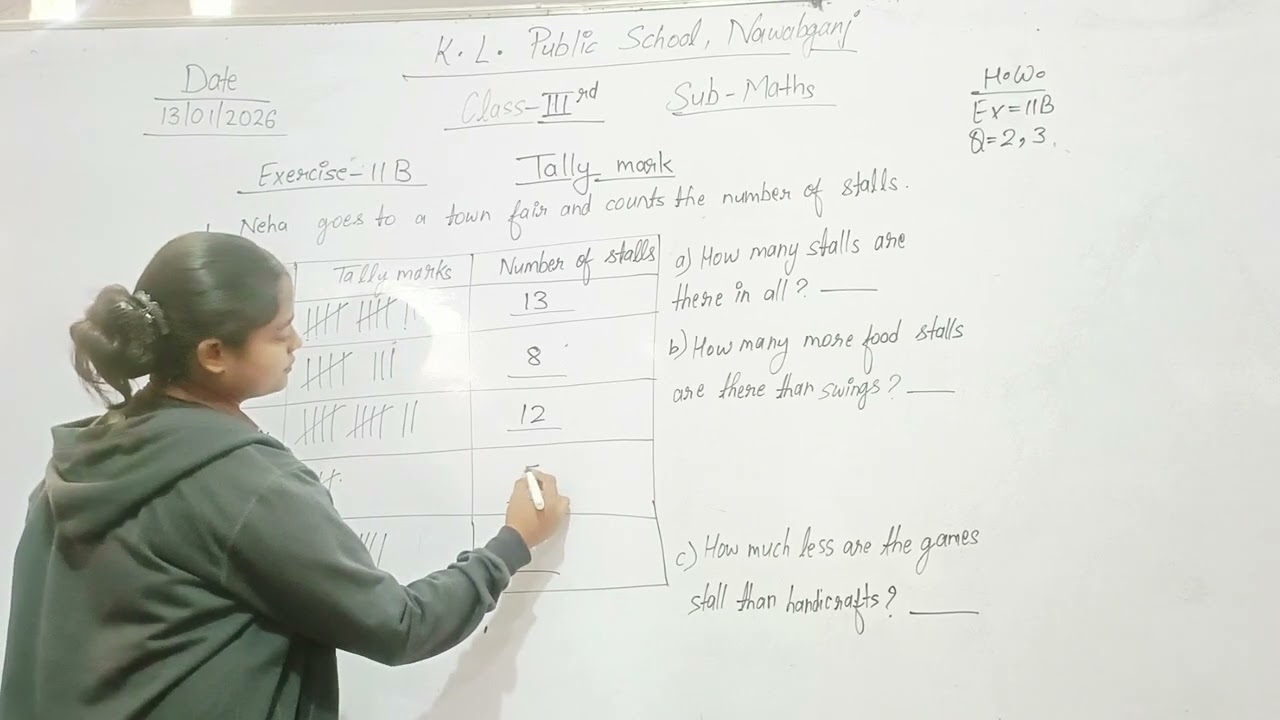 K. L. Public School, Nawabganj
Date
13/01/2026
Class-III rd
Sub-Maths
H.W.
Ex=11B
Q=2,3.
Exercise-11B
Tally mark
1. Neha goes to a town fair and counts the number of stalls.
Tally marks
Number of stalls
13
8
12
a) How many stalls are
there in all? ____
b) How many more food stalls
are there than swings? ____
c) How much less are the games
stall than handicrafts? ____